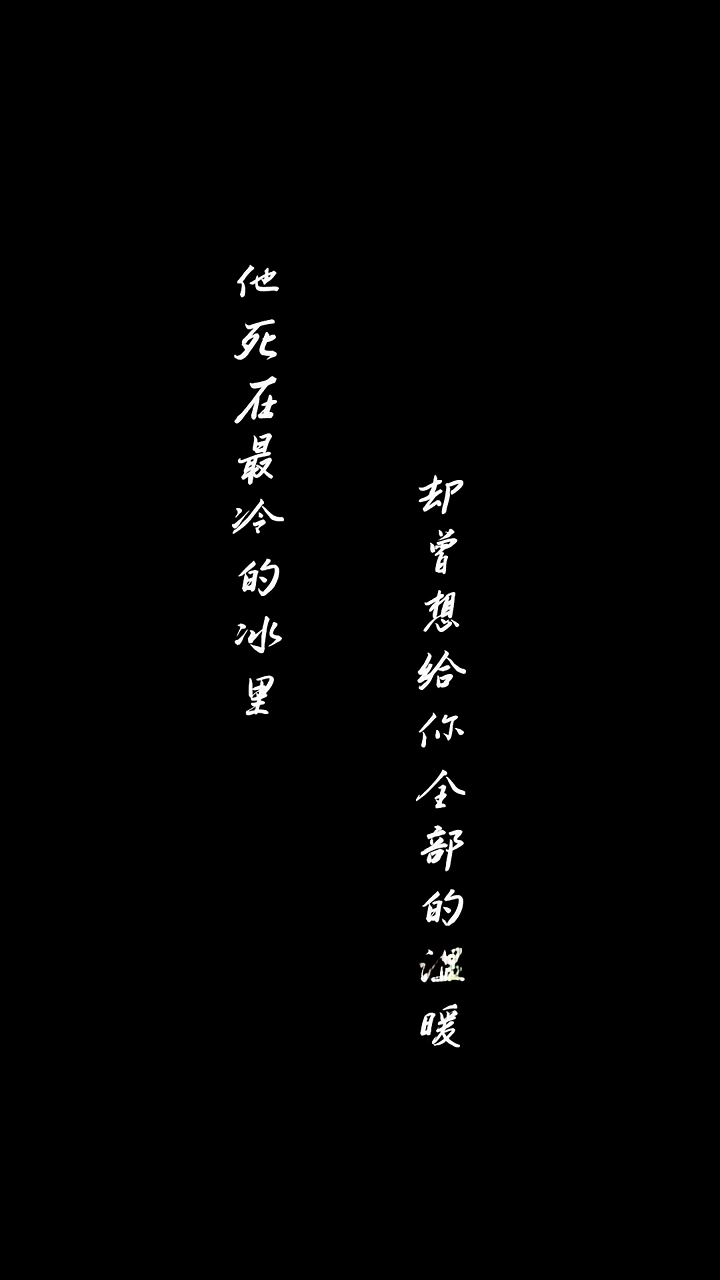 他死在最冷的冰里
却曾想给你全部的温暖